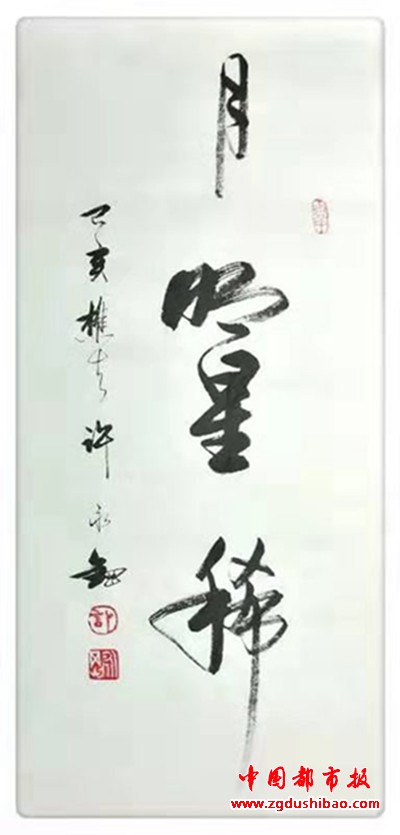 月明星稀
己亥樵夫許永
中国都市报
www.zgdushibao.com